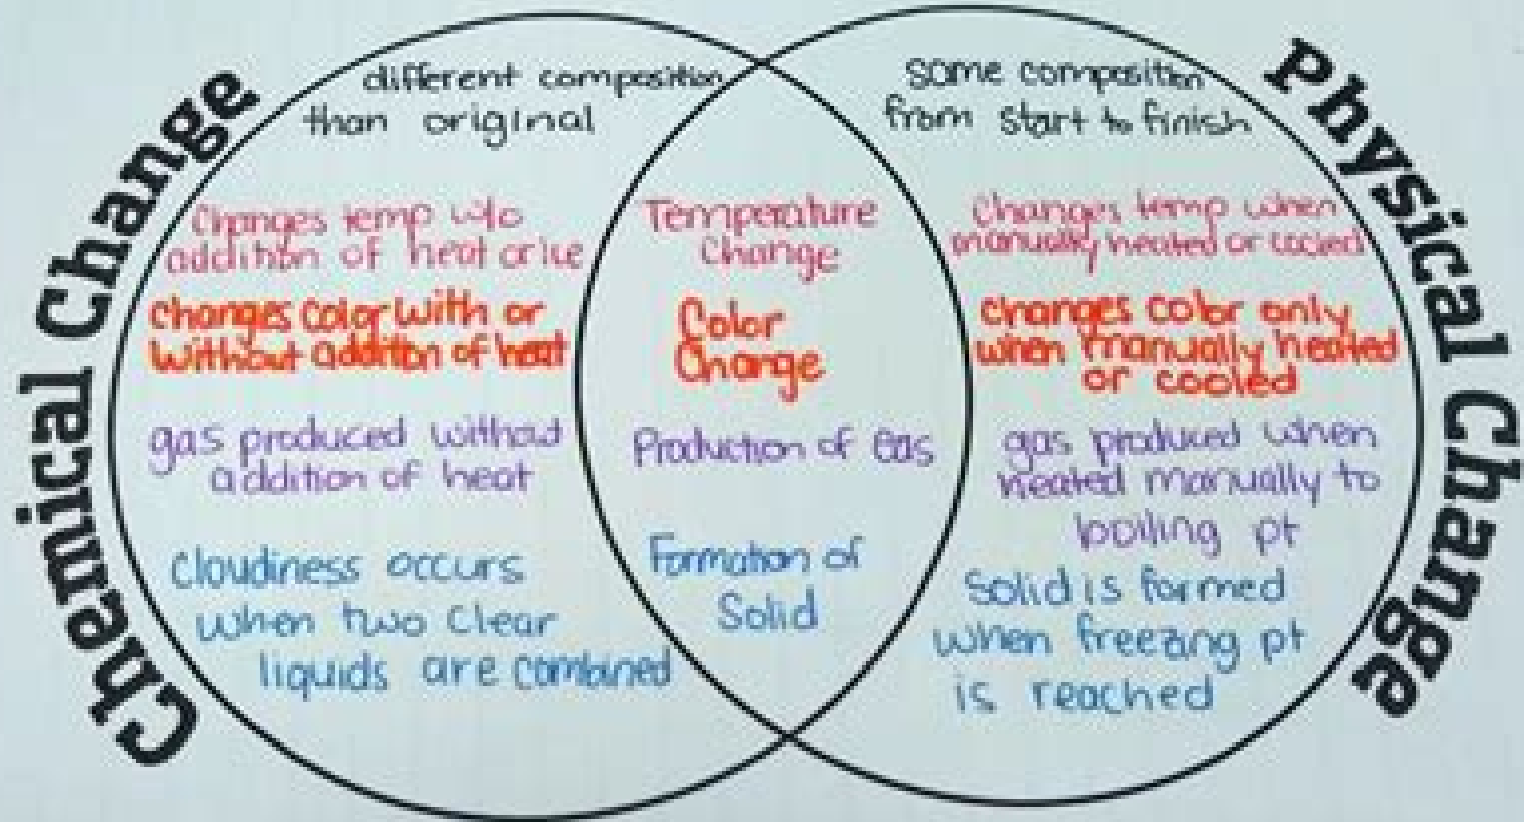 Chemical Change
different composition
than original
Changes temp w/o
addition of heat or ice
changes color with or
without addition of heat
gas produced without
addition of heat
cloudiness occurs
when two clear
liquids are combined
Temperature
Change
Color
Change
Production of Gas
Formation of
Solid
Physical Change
same composition
from start to finish
Changes temp when
manually heated or cooled
changes color only
when manually heated
or cooled
gas produced when
heated manually to
boiling pt
Solid is formed
when freezing pt
is reached